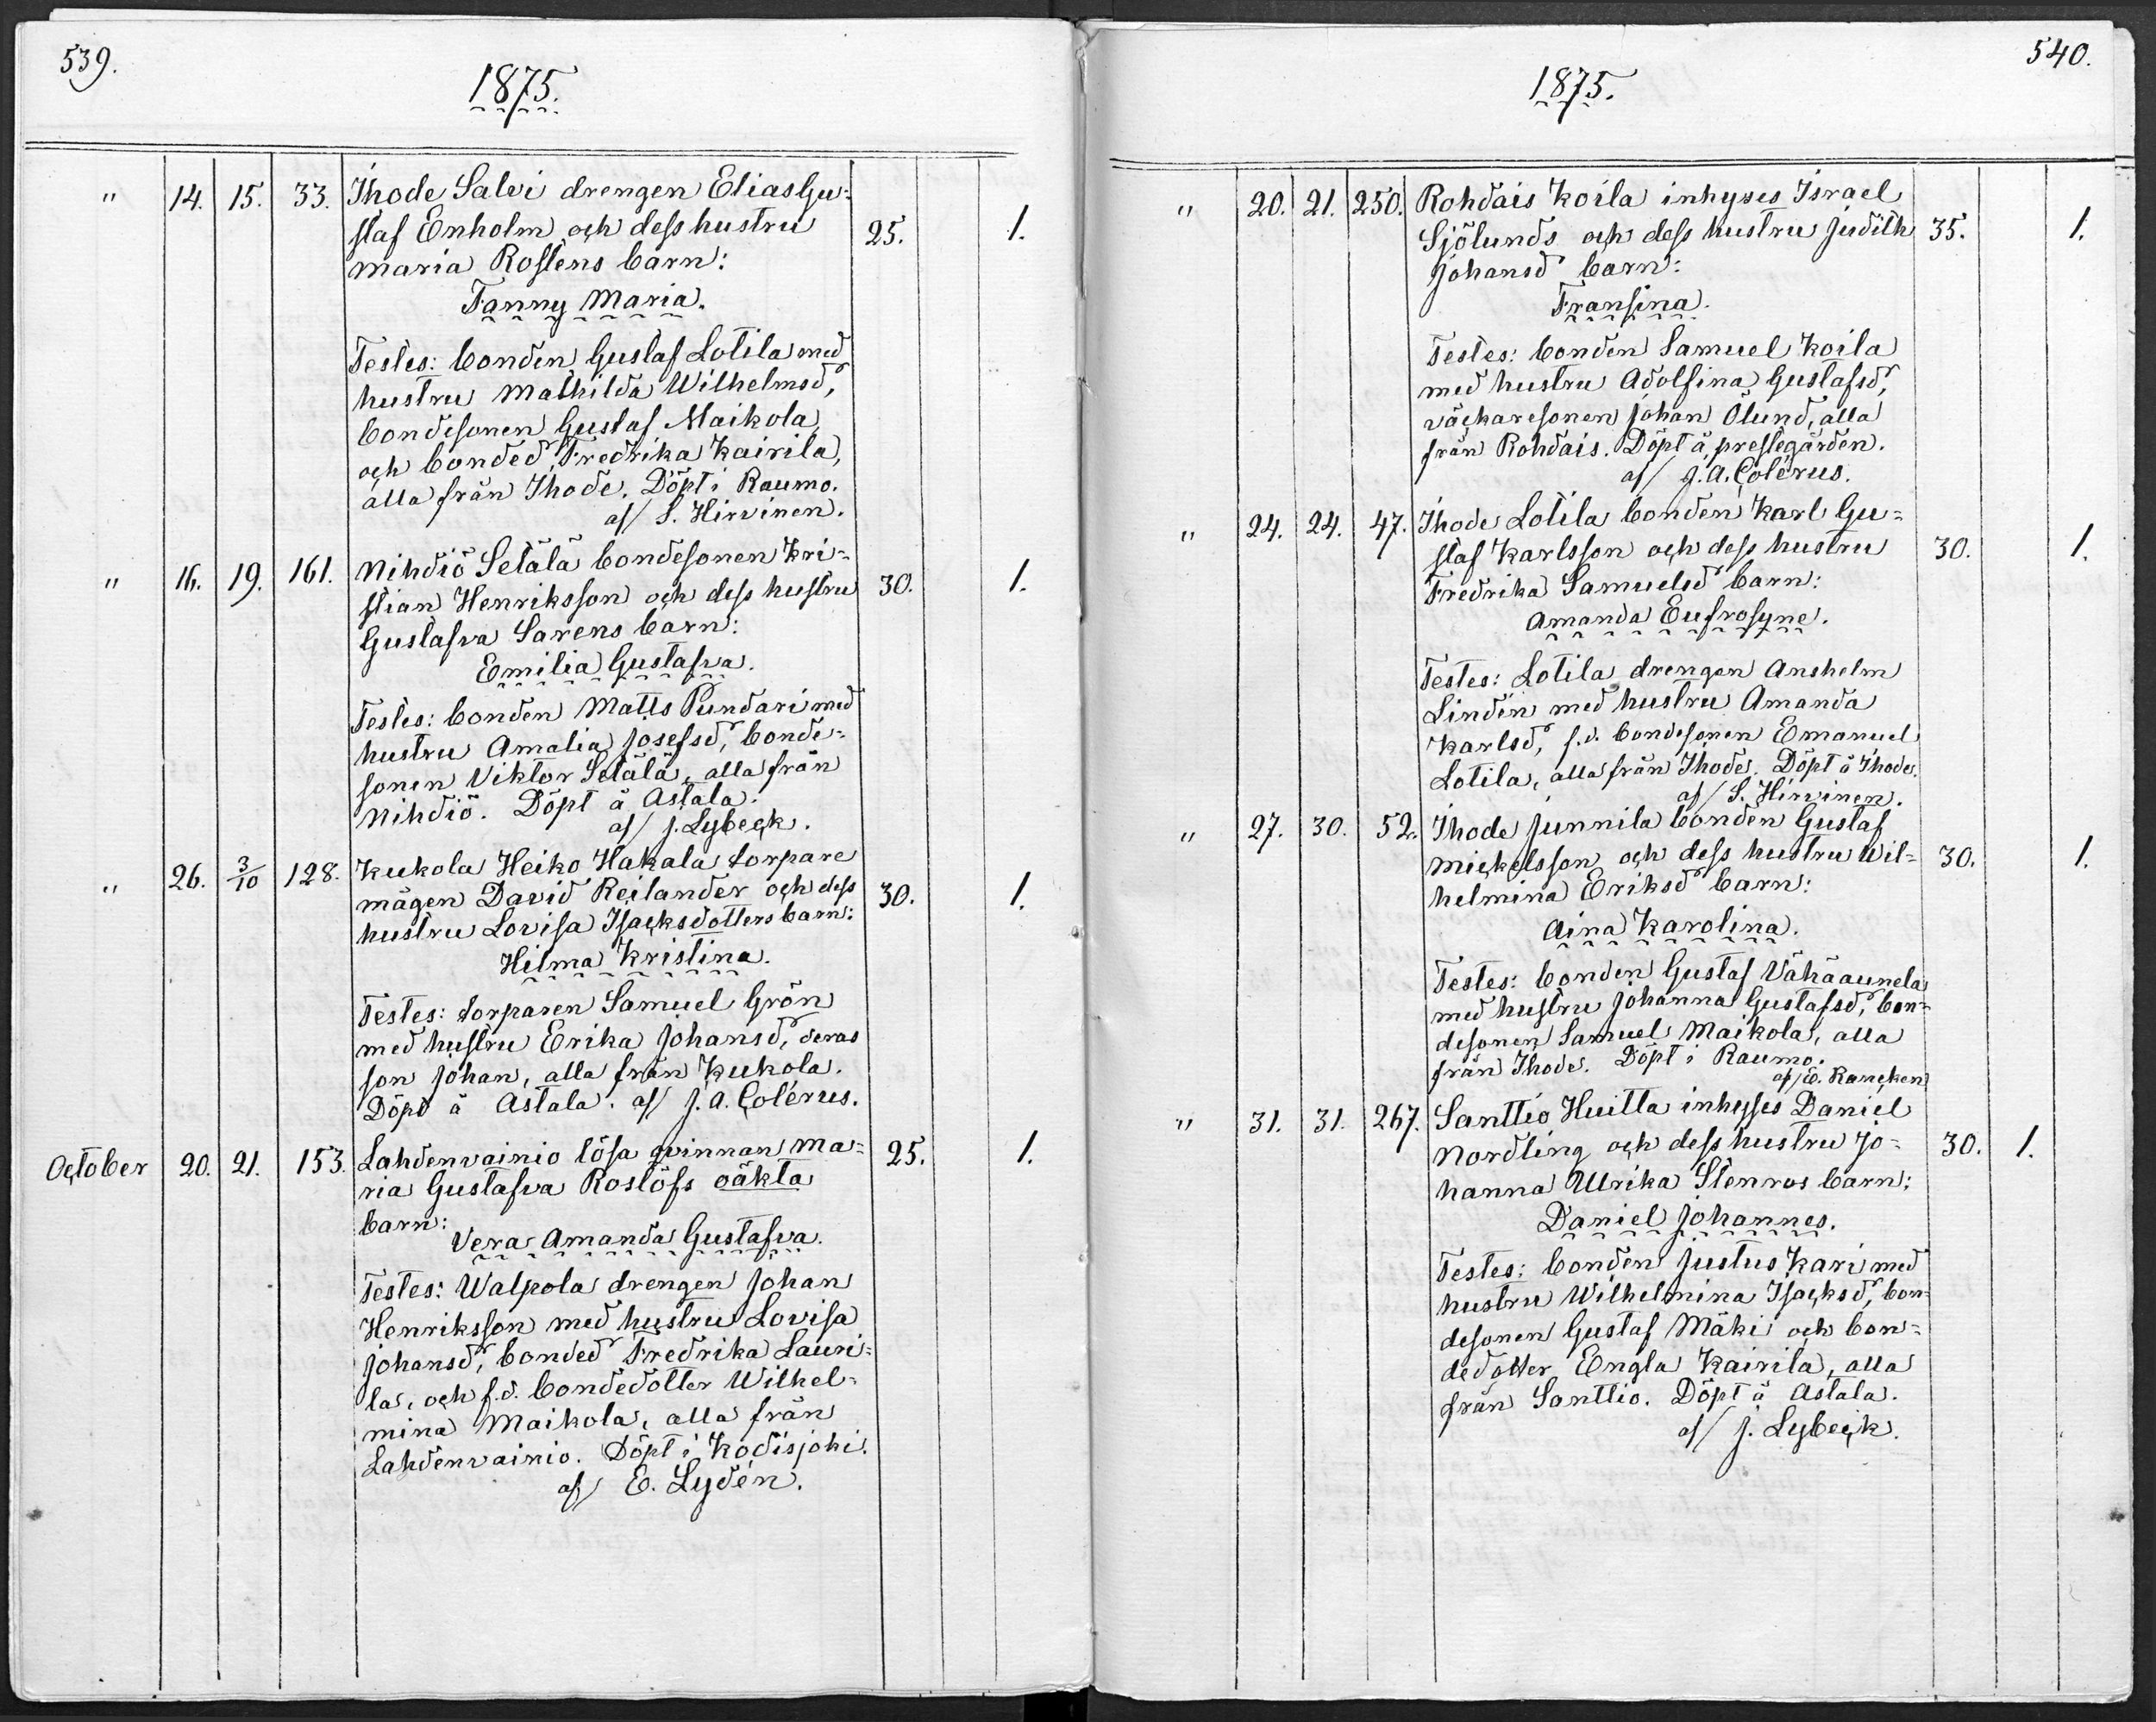 539.
1875.
" 14. 15. 33. Ihode Salvi drengen Elias Gu-
staf Enholm och dess hustru 25. 1.
Maria Rostens barn:
Fanny Maria.
Testes: bonden Gustaf Lotila med
hustru Mathilda Wilhelmsd,
bondesonen Gustaf Maikola
och bonded. Fredrika Kairila,
alla från Ihode. Döpt i Raumo.
af/ S. Hirvinen.
" 16. 19. 161. Nihdiö Setälä bondesonen Kri-
stian Henriksson och dess hustru 30. 1.
Gustafva Sarens barn:
Emilia Gustafva.
Testes: bonden Matts Pundari med
hustru Amalia Josefsd, bonde-
sonen Viktor Setälä, alla från
Nihdiö. Döpt å Astala.
af/ J. Lybeck.
" 26. 3/10 128. Kukola Heiko Hakala torpare
mågen David Reilander och dess 30. 1.
hustru Lovisa Isacksdotters barn:
Hilma Kristina.
Testes: torparen Samuel Grön
med hustru Erika Johansd, deras
son Johan, alla från Kukola.
Döpt å Astala. af/ J. A. Colérus.
October 20. 21. 153. Lahdenvainio lösa qvinnan Ma- 25. 1.
ria Gustafva Roslöfs oäkta
barn:
Vera Amanda Gustafva.
Testes: Walpola drengen Johan
Henriksson med hustru Lovisa
Johansd, bonded Fredrika Lauri-
la, och f.d. bondedotter Wilhel-
mina Maikola, alla från
Lahdenvainio. Döpt i Kodisjoki.
af/ E. Lydén.
540.
1875.
" 20. 21. 250. Rohdais Koila inhyses Israel
Sjölunds och dess hustru Judith 35. 1.
Johansd barn:
Fransina.
Testes: bonden Samuel Koila
med hustru Adolfina Gustafsd,
väckaresonen Johan Ölund, alla
från Rohdais. Döpt å prestegården.
af/ J. A. Colérus.
" 24. 24. 47. Ihode Lotila bonden Karl Gu-
staf Karlsson och dess hustru 30. 1.
Fredrika Samuelsd barn:
Amanda Eufrosyne.
Testes: Lotila drengen Anshelm
Lindén med hustru Amanda
Karlsd, f.d. bondesonen Emanuel
Lotila, alla från Ihode. Döpt å Ihode.
af/ S. Hirvinen.
" 27. 30. 52. Ihode Junnila bonden Gustaf
Mickelsson och dess hustru Wil- 30. 1.
helmina Eriksd barn:
Aina Karolina.
Testes: bonden Gustaf Vähäaunela
med hustru Johanna Gustafsd, bon-
desonen Samuel Maikola, alla
från Ihode. Döpt i Raumo.
af/ E. Rancken
" 31. 31. 267. Santtio Huitta inhyses Daniel
Nordling och dess hustru Jo- 30. 1.
hanna Ulrika Stenros barn:
Daniel Johannes.
Testes: bonden Justus Kari med
hustru Wilhelmina Isacksd, bon-
desonen Gustaf Mäki och bon-
dedotter Engla Kairila, alla
från Santtio. Döpt å Astala.
af/ J. Lybeck.